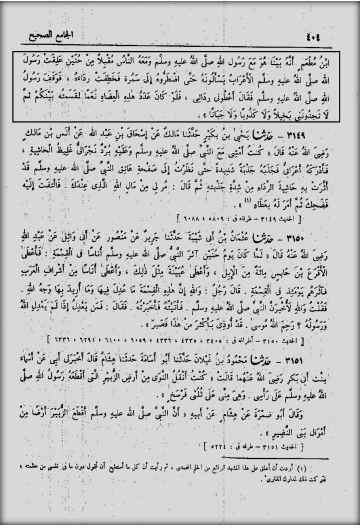 ٤٠٤
الجامع الصحيح
ابْنُ مُطْعِمٍ أَنَّهُ بَيْنَا هُوَ مَعَ رَسُولِ اللهِ صَلَّى اللهُ عَلَيْهِ وَسَلَّم وَمَعَهُ النَّاسُ مُقْبِلاً مِنْ حُنَيْنٍ عَلِقَتْ رَسُولَ
اللهِ صَلَّى اللهُ عَلَيْهِ وَسَلَّم الأَعْرَابُ يَسْأَلُونَهُ حَتَّى اضْطَرُّوهُ إِلَى سَمُرَةٍ فَخَطِفَتْ رِدَاءَهُ ، فَوَقَفَ رَسُولُ
اللهِ صَلَّى اللهُ عَلَيْهِ وَسَلَّم فَقَالَ أَعْطُونِي رِدَائِي ، فَلَوْ كَانَ عَدَدُ هَذِهِ الْعِضَاهِ نَعَمًا لَقَسَمْتُهُ بَيْنَكُمْ ثُمَّ
لَا تَجِدُونَنِي بَخِيلاً وَلَا كَذُوبًا وَلَا جَبَانًا »
٣١٤٩ - حدثنا يَحْيَى بْنُ بُكَيْرٍ حَدَّثَنَا مَالِكٌ عَنْ إِسْحَاقَ بْنِ عَبْدِ اللهِ عَنْ أَنَسِ بْنِ مَالِكٍ
رَضِيَ اللهُ عَنْهُ قَالَ « كُنْتُ أَمْشِي مَعَ النَّبِيِّ صَلَّى اللهُ عَلَيْهِ وَسَلَّم وَعَلَيْهِ بُرْدٌ نَجْرَانِيٌّ غَلِيظُ الْحَاشِيَةِ ،
فَأَدْرَكَهُ أَعْرَابِيٌّ فَجَذَبَهُ جَذْبَةً شَدِيدَةً حَتَّى نَظَرْتُ إِلَى صَفْحَةِ عَاتِقِ النَّبِيِّ صَلَّى اللهُ عَلَيْهِ وَسَلَّم قَدْ
أَثَّرَتْ بِهِ حَاشِيَةُ الرِّدَاءِ مِنْ شِدَّةِ جَذْبَتِهِ ثُمَّ قَالَ : مُرْ لِي مِنْ مَالِ اللهِ الَّذِي عِنْدَكَ . فَالْتَفَتَ إِلَيْهِ
فَضَحِكَ ثُمَّ أَمَرَ لَهُ بِعَطَاءٍ » (١)
[ الحديث ٣١٤٩ - طرفاه في : ٥٨٠٩ ، ٦٠٨٨ ]
٣١٥٠ - حدثنا عُثْمَانُ بْنُ أَبِي شَيْبَةَ حَدَّثَنَا جَرِيرٌ عَنْ مَنْصُورٍ عَنْ أَبِي وَائِلٍ عَنْ عَبْدِ اللهِ
رَضِيَ اللهُ عَنْهُ قَالَ « لَمَّا كَانَ يَوْمُ حُنَيْنٍ آثَرَ النَّبِيُّ صَلَّى اللهُ عَلَيْهِ وَسَلَّم أُنَاسًا فِي الْقِسْمَةِ : فَأَعْطَى
الأَقْرَعَ بْنَ حَابِسٍ مِائَةً مِنَ الإِبِلِ ، وَأَعْطَى عُيَيْنَةَ مِثْلَ ذَلِكَ ، وَأَعْطَى أُنَاسًا مِنْ أَشْرَافِ الْعَرَبِ
فَآثَرَهُمْ يَوْمَئِذٍ فِي الْقِسْمَةِ . قَالَ رَجُلٌ : وَاللهِ إِنَّ هَذِهِ الْقِسْمَةَ مَا عُدِلَ فِيهَا وَمَا أُرِيدَ بِهَا وَجْهُ اللهِ .
فَقُلْتُ وَاللهِ لَأُخْبِرَنَّ النَّبِيَّ صَلَّى اللهُ عَلَيْهِ وَسَلَّم . فَأَتَيْتُهُ فَأَخْبَرْتُهُ . فَقَالَ : فَمَنْ يَعْدِلُ إِذَا لَمْ يَعْدِلِ اللهُ
وَرَسُولُهُ ؟ رَحِمَ اللهُ مُوسَى ، قَدْ أُوذِيَ بِأَكْثَرَ مِنْ هَذَا فَصَبَرَ »
[ الحديث ٣١٥٠ - أطرافه في : ٣٤٠٥ ، ٤٣٣٥ ، ٤٣٣٦ ، ٦٠٥٩ ، ٦١٠٠ ، ٦٢٩١ ، ٦٣٣٦ ]
٣١٥١ - حدثنا مَحْمُودُ بْنُ غَيْلَانَ حَدَّثَنَا أَبُو أُسَامَةَ حَدَّثَنَا هِشَامٌ قَالَ أَخْبَرَنِي أَبِي عَنْ أَسْمَاءَ
بِنْتِ أَبِي بَكْرٍ رَضِيَ اللهُ عَنْهُمَا قَالَتْ « كُنْتُ أَنْقُلُ النَّوَى مِنْ أَرْضِ الزُّبَيْرِ الَّتِي أَقْطَعَهُ رَسُولُ اللهِ صَلَّى
اللهُ عَلَيْهِ وَسَلَّم عَلَى رَأْسِي . وَهِيَ مِنِّي عَلَى ثُلُثَيْ فَرْسَخٍ »
وَقَالَ أَبُو ضَمْرَةَ عَنْ هِشَامٍ عَنْ أَبِيهِ « أَنَّ النَّبِيَّ صَلَّى اللهُ عَلَيْهِ وَسَلَّم أَقْطَعَ الزُّبَيْرَ أَرْضًا مِنْ
أَمْوَالِ بَنِي النَّضِيرِ »
[ الحديث ٣١٥١ - طرفه في : ٥٢٢٤ ]
(١) أردت أن أعلق على هذا المشهد الرائع من الخلق المحمدي ، ثم رأيت أن كل ما أستطيع أن أقول دون ما في نفسي من عظمته ،
فتركت ذلك لمدارك القارئ